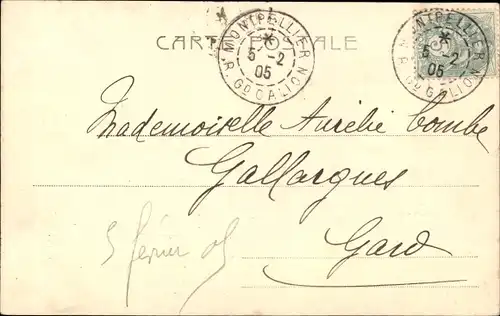 CARTE POSTALE
MONTPELLIER
*
5 -2
05
R. GD GALION
MONTPELLIER
*
5 -2
05
R. GD GALION
Mademoiselle Aurélie Combe
Gallargues
Gard
5 février 05